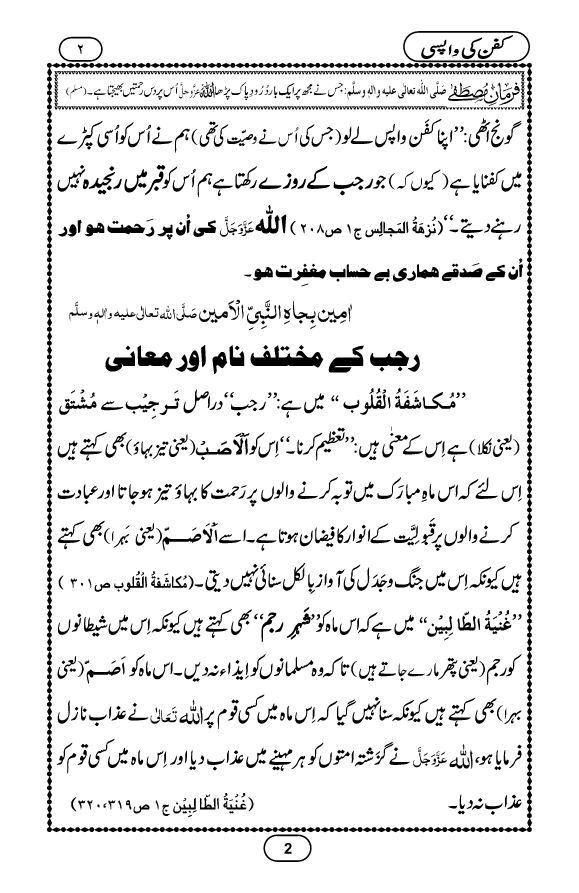 کفن کی واپسی
۲
فرمانِ مصطفٰے صَلَّی اللہ تعالٰی علیہ واٰلہٖ وسلَّم: جس نے مجھ پر ایک بار دُرُودِ پاک پڑھا اللہ عَزَّوَجَلَّ اُس پر دس رحمتیں بھیجتا ہے۔ (مسلم)
گونج اٹھی: ’’اپنا کفَن واپس لے لو (جس کی اُس نے وصیّت کی تھی) ہم نے اُس کو اُسی کپڑے
میں کفنایا ہے ( کیوں کہ ) جو رجب کے روزے رکھتا ہے ہم اُس کو قبر میں رنجیدہ نہیں
رہنے دیتے۔‘‘ (نُزهَةُ المَجالِس ج۱ ص۲۰۸ ) اللہ عَزَّوَجَلَّ کی اُن پر رَحمت ھو اور
اُن کے صَدقے ھماری بے حساب مغفِرت ھو۔
اٰمِین بِجاہِ النَّبِیِّ الْاَمین صَلَّی اللہ تعالٰی علیہ واٰلہٖ وسلَّم
رجب کے مختلف نام اور معانی
’’مُکاشَفَةُ الْقُلُوب ‘‘ میں ہے: ’’رجب‘‘ دراصل تَرجِیْب سے مُشْتَق
(یعنی نکلا ) ہے اِس کے معنٰی ہیں: ’’تعظیم کرنا۔‘‘ اِس کو اَلْاَصَبّ (یعنی تیز بہاؤ) بھی کہتے ہیں
اِس لئے کہ اس ماہِ مبارَک میں توبہ کرنے والوں پر رَحمت کا بہاؤ تیز ہو جاتا اور عبادت
کرنے والوں پر قَبولیَّت کے انوار کا فیضان ہوتا ہے۔ اسے اَلْاَصَمّ (یعنی بَہرا) بھی کہتے
ہیں کیونکہ اِس میں جنگ و جَدَل کی آواز بالکل سنائی نہیں دیتی۔ (مُکاشَفَةُ الْقُلوب ص۳۰۱ )
’’غُنْیَةُ الطّا لِبِیْن‘‘ میں ہے کہ اس ماہ کو ’’شَہرِ رجم‘‘ بھی کہتے ہیں کیونکہ اِس میں شیطانوں
کو رجم (یعنی پتھر مارے جاتے ہیں) تاکہ وہ مسلمانوں کو اِیذاء نہ دیں۔ اس ماہ کو اَصَمّ (یعنی
بہرا) بھی کہتے ہیں کیونکہ سنا نہیں گیا کہ اِس ماہ میں کسی قوم پر اللہ تَعَالٰی نے عذاب نازل
فرمایا ہو، اللہ عَزَّوَجَلَّ نے گزَشتہ امتوں کو ہر مہینے میں عذاب دیا اور اِس ماہ میں کسی قوم کو
عذاب نہ دیا۔ (غُنْیَةُ الطّا لِبِیْن ج۱ ص۳۱۹،۳۲۰)
2